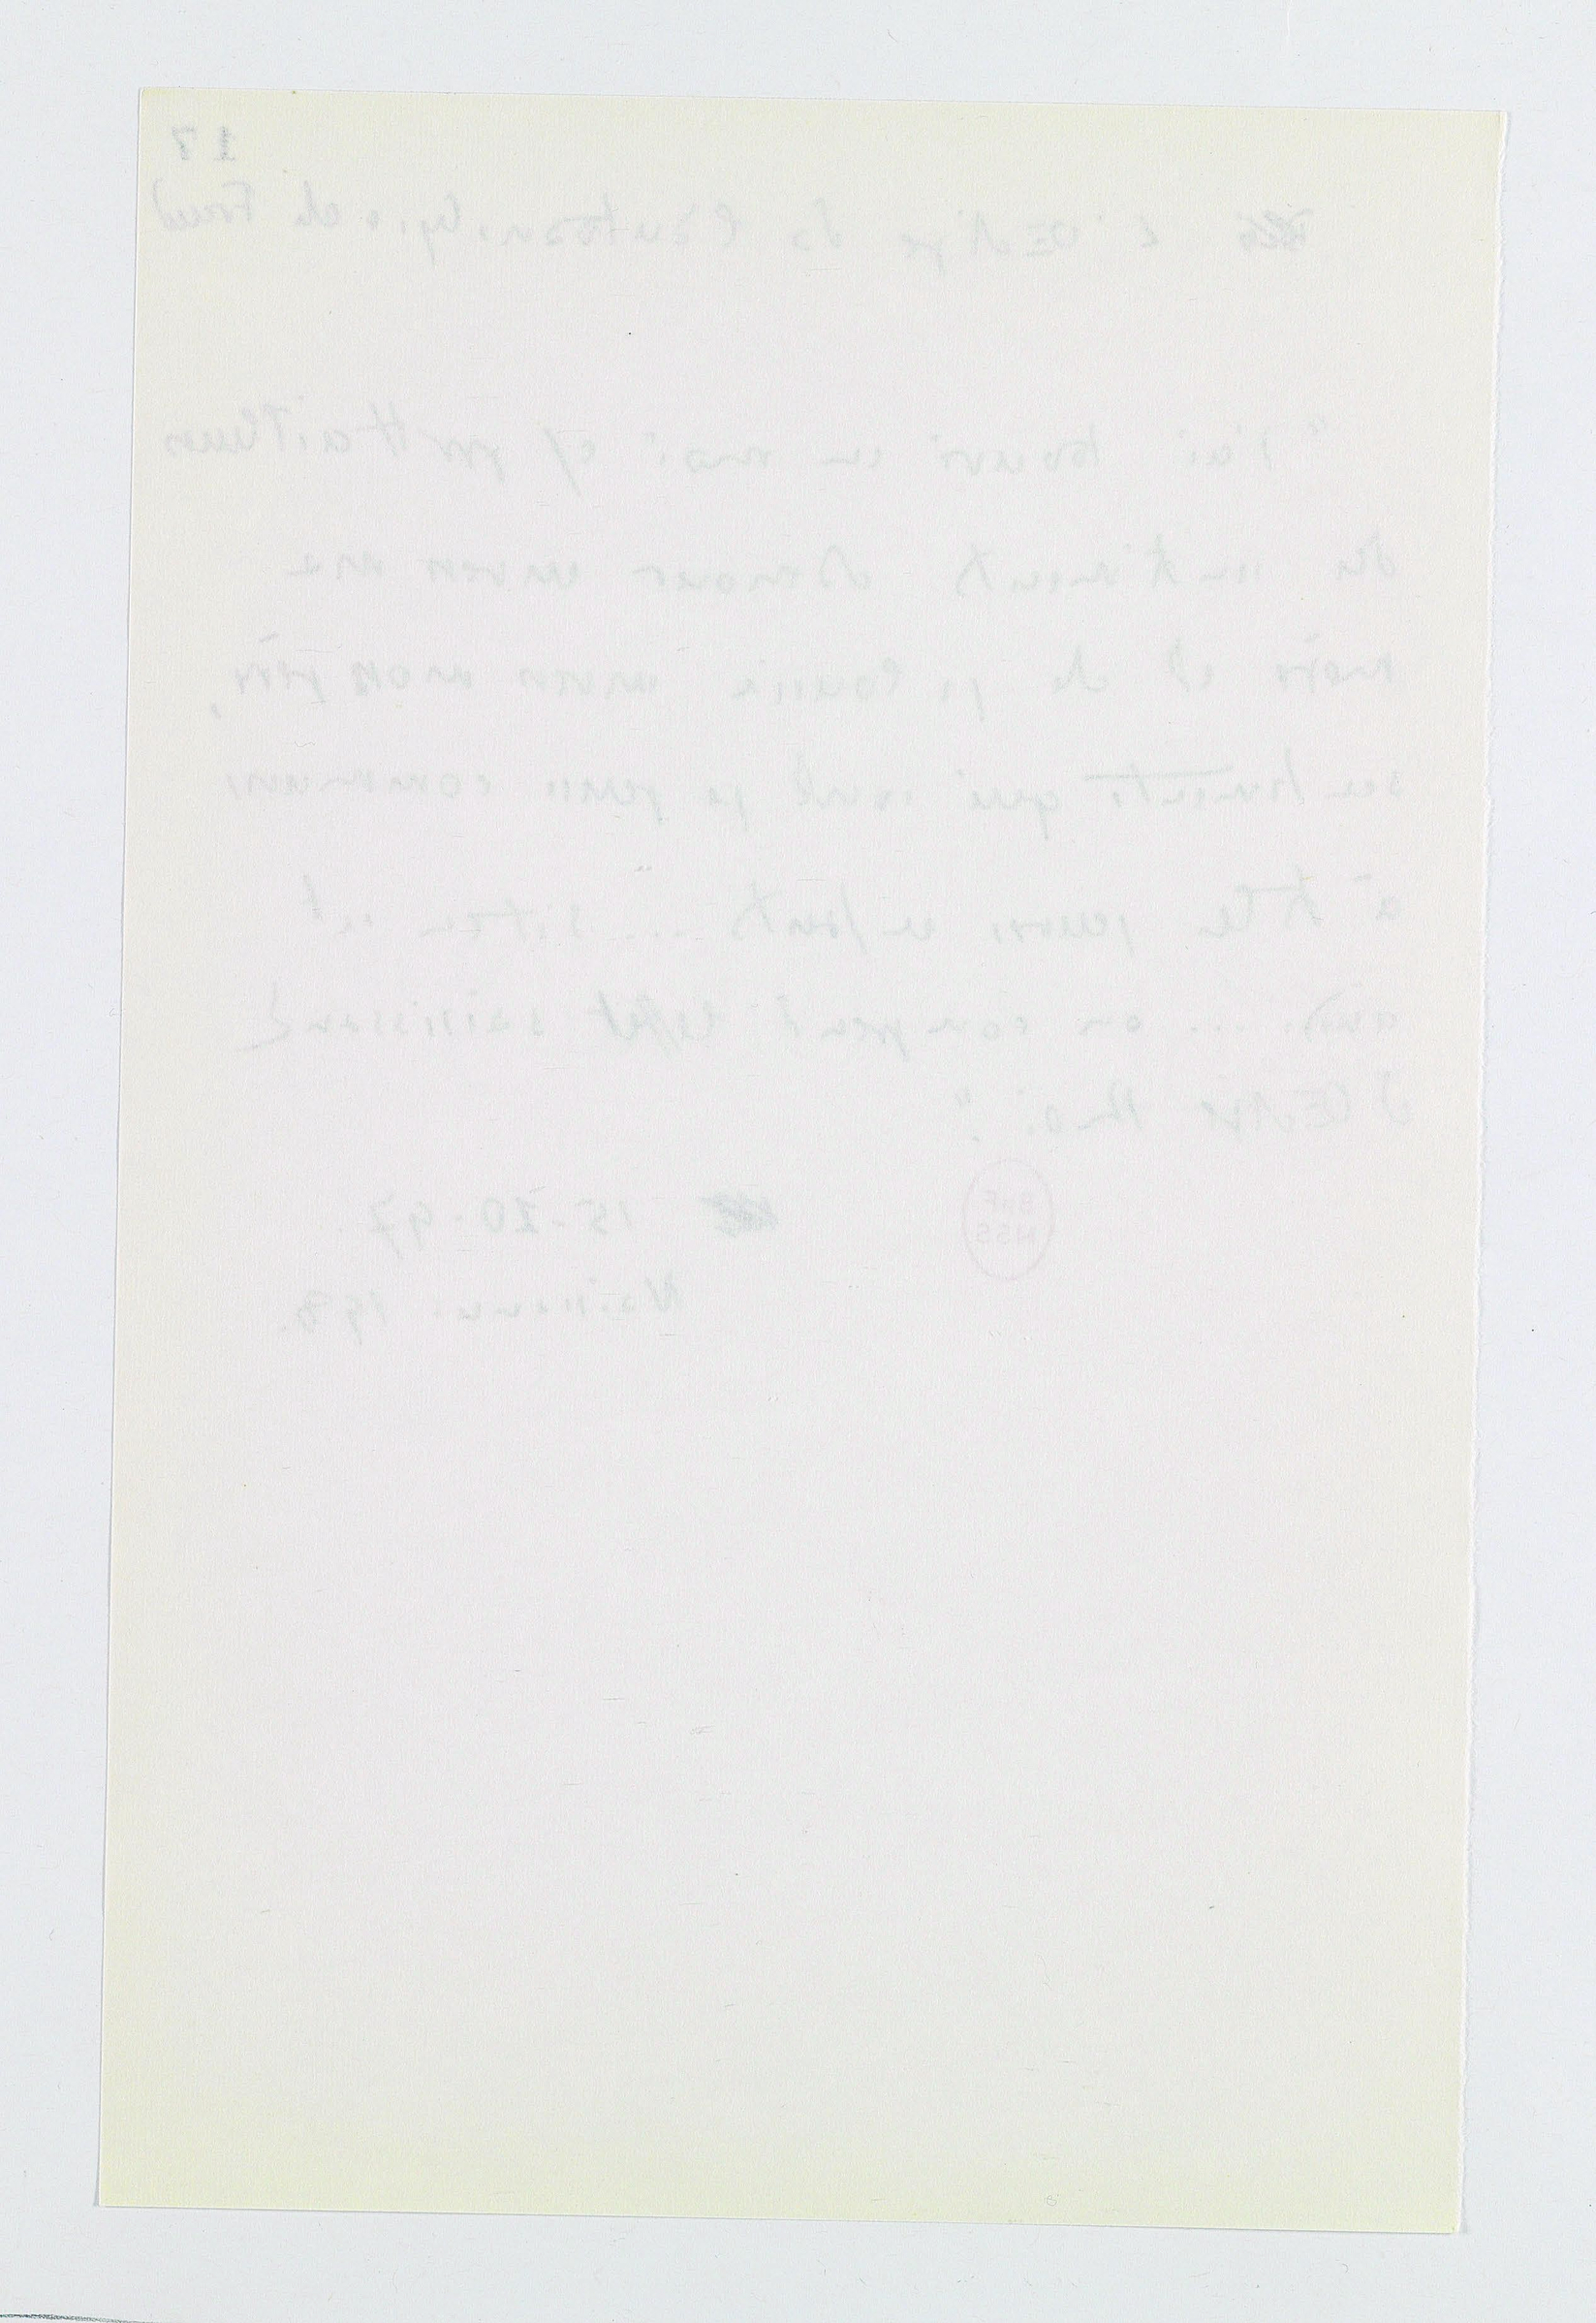 17
L'Œdipe ds l'autoanalyse de Freud
"J'ai trouvé en moi cf par tt ailleurs
des sentiments d'amour envers ma
mère et de jalousie envers mon père,
sentiments qui sont je pense communs
à tte jeunes enfants ... S'il en est
ainsi ... on comprend l'effet saisissant
d'Œdipe Roi."
BnF
MSS
15-10-97.
Naissance